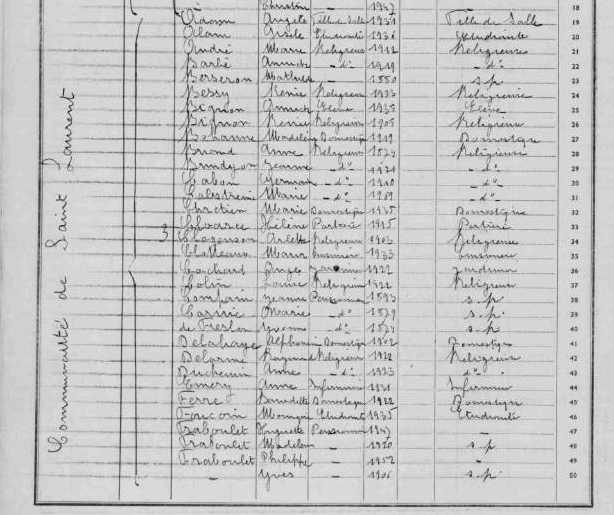 Christiane 1947 18
Adam Angèle Fille de Salle 1931 Fille de Salle 19
Alain Gisèle Etudiante 1936 Etudiante 20
André Marie Religieuse 1912 Religieuse 21
Barbé Annick - do 1919 - do 22
Berseron 1880 s.p 23
Bessy Renée Religieuse 1923 Religieuse 24
Bignon Annick Elève 1935 Elève 25
Bignon Renée Religieuse 1905 Religieuse 26
Madeleine Domestique 1919 Domestique 27
Briand Anne Religieuse 1874 Religieuse 28
Jeanne - do 1921 - do 29
Cabon Germaine - do 1910 - do 30
Marie - do 1909 - do 31
Chrétien Marie Domestique 1935 Domestique 32
Hélène 1915 33
3 Arlette Religieuse 1903 Religieuse 34
Marie 1933 35
Cochard Ange Jardinier 1922 Jardinier 36
Colin Louise Religieuse 1922 Religieuse 37
Compain Jeanne Pensionnaire 1893 s.p. 38
Marie - do 1879 s.p 39
de Freslon Yvonne - do 1874 s.p 40
Delahaye Alphonsine Domestique 1902 Domestique 41
Delorme Raymonde Religieuse 1922 Religieuse 42
Duchemin Anne - do 1923 do 43
Emery Anne Infirmière Infirmière 44
Ferré Bernadette Domestique 1922 Domestique 45
Etudiante 1935 Etudiante 46
Fraboulet Huguette Pensionnaire 1947 - 47
Fraboulet Madeleine - 1920 s.p 48
Fraboulet Philippe - 1952 - 49
- Yves - 1906 s.p 50
Communauté de Saint Laurent